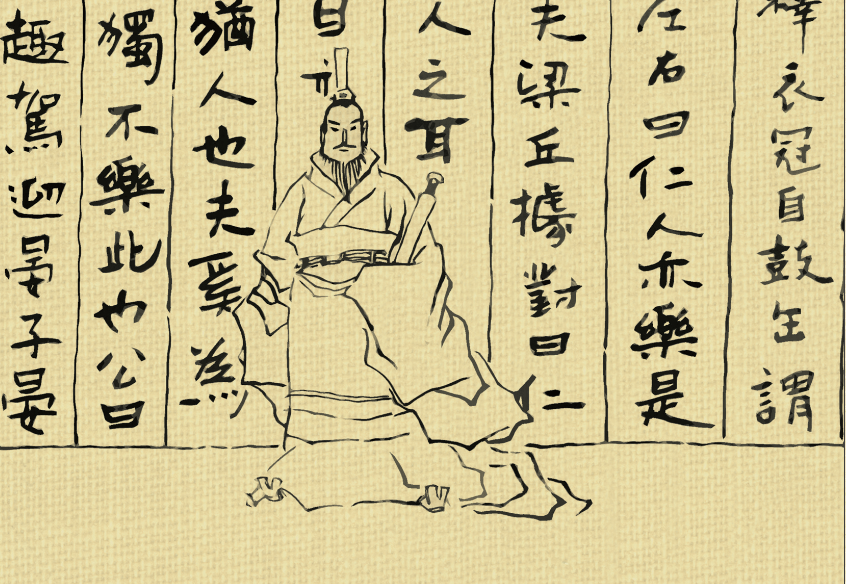 釋衣冠自鼓缶謂
左右曰仁人亦樂是
夫梁丘據對曰仁
人之耳
目亦
猶人也夫奚為
獨不樂此也公曰
趣駕迎晏子晏